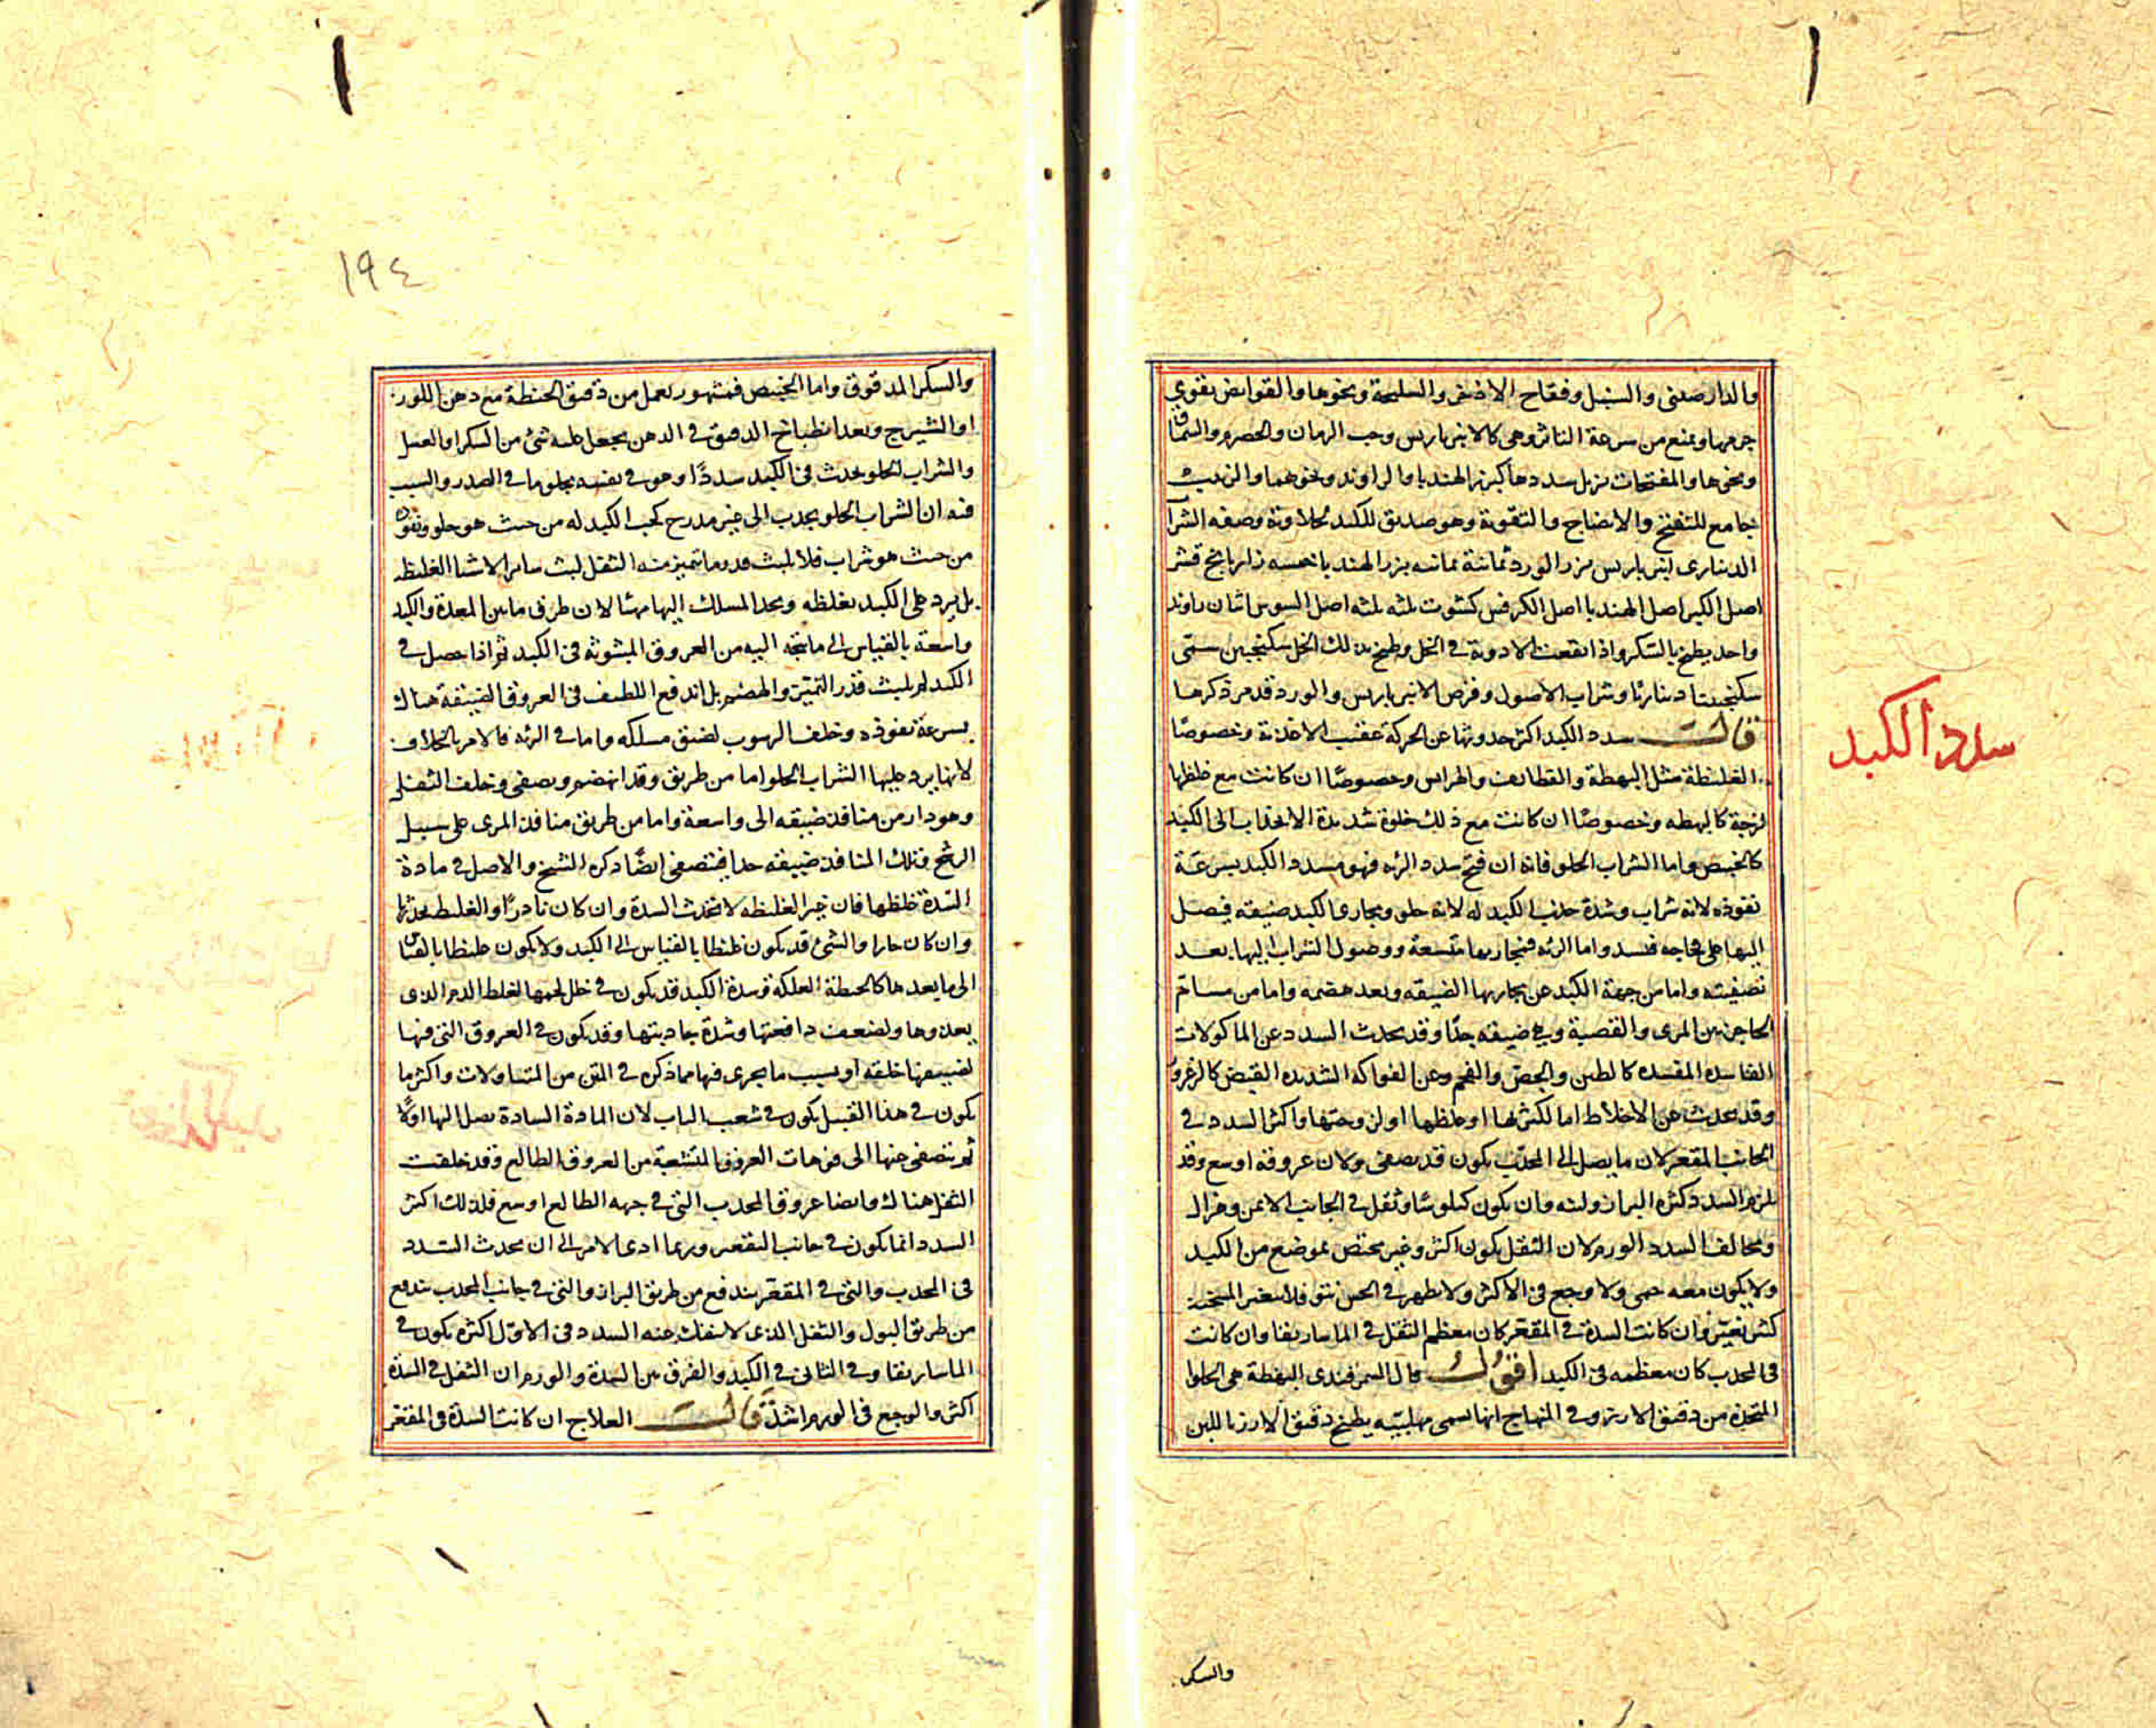 والدارصينى والسنبل وفقاح الاذخر والسليخة ونحوها والقوابض تقوى
جرمها وتمنع من سرعة التاثر وهى كالانبرباريس وحب الرمان والحصرم والسماق
ونحوها والمفتحات تزيل سددها كبزر الهندبا والراوند ونحوهما والزبيب
جامع للتفتيح والانضاج والتقوية وهو صديق للكبد بحلاوته وصفة الشراب
الدينارى انبرباريس بزر الورد ثمانية ثمانيه بزر الهندبا خمسه رازيانج قشر
اصل الكبر اصل الهندبا اصل الكرفس كشوت ثلثه ثلثه اصل السوس اثنان راوند
واحد يطبخ بالسكر واذا انقعت الادوية فى الخل وطبخ بذلك الخل سكنجبين سمى
سكنجبينا ديناريا وشراب الاصول وقرص الانبرباريس والورد قد مر ذكرها
سدد الكبد
قالـــت سدد الكبد اكثر حدوثها عن الحركة عقيب الاغذية وخصوصًا
الغليظة مثل البهطة والقطائف والهرايس وخصوصًا ان كانت مع غلظها
لزجة كالبهطه وخصوصًا ان كانت مع ذلك حلوة شديدة الانجذاب الى الكبد
كالخبيص واما الشراب الحلو فانه ان فتح سدد الرئه فهو مسدد الكبد بسرعة
نفوذه لانه شراب وشدة جذب الكبد له لانه حلو ومجارى الكبد ضيقه فيصل
اليها على فجاجه فيسد واما الرئه فمجاريها متسعة ووصول الشراب اليها بعد
تصفيته واما من جهة الكبد عن مجاريها الضيقه وبعد هضمه واما من مسام
الحاجز بين المرى والقصبة وهى ضيقه جدًا وقد يحدث السدد عن الماكولات
الفاسده المفسده كالطين والجص والفحم وعن الفواكه الشديده القبض كالزعرور
وقد يحدث عن الاخلاط اما لكثرتها او غلظها او لزوجتها واكثر السدد فى
الجانب المقعر لان ما يصل الى المحدب يكون قد يصفى ولان عروقه اوسع وقد
يلزم السدد كثره البراز ولينه وان يكون كيلوسيًا وثقل فى الجانب الايمن وهزال
ويخالف السدد الورم لان الثقل يكون اكثر وغير مختص بموضع من الكبد
ولا يكون معه حمى ولا وجع فى الاكثر ولا يظهر فى الحس نتو فلا تتغير السحنة
كثير تغير وان كانت السدة فى المقعر كان معظم الثقل فى الماساريقا وان كانت
فى المحدب كان معظمه فى الكبد اقول قال السمرقندى البهطة هى الحلوا
المتخذة من دقيق الارز وفى المنهاج انها تسمى مهلبيّه يطبخ دقيق الارز باللبن
والسكر
١٩٤
والسكر المدقوق واما الخبيص فمشهور يعمل من دقيق الحنطة مع دهن اللوز
او الشيرج وبعد انطباخ الدقيق فى الدهن يجعل عليه شئ من السكر او العسل
والشراب الحلو يحدث فى الكبد سددًا وهو فى نفسه يجلو ما فى الصدر والسبب
فيه ان الشراب الحلو يجذب الى غير مدرج لحب الكبد له من حيث هو حلو ونفوذه
من حيث هو شراب فلا يلبث قدر ما يتميز منه الثفل لبث سائر الاشيا الغليظه
بل يرد على الكبد بغلظه ويجد المسلك اليها مهيئًا لان طرف ما بين المعدة والكبد
واسعة بالقياس الى ما يتجه اليه من العروق المبثوثه فى الكبد ثم اذا حصل فى
الكبد لم يلبث قدر التميز والهضم بل اندفع اللطيف فى العروق الضيقة هناك
بسرعة نفوذه وخلف الرسوب لضيق مسلكه واما فى الرئه فالامر بالخلاف
لانها يرد عليها الشراب الحلو اما من طريق وقد انهضم وتصفى وخلف الثفل
وهو دار من منافذ ضيقه الى واسعة واما من طريق منافذ المرى على سبيل
الرشح وتلك المنافذ ضيقه جدا فيتصفى ايضًا ذكره الشيخ والاصل فى مادة
السدة غلظها فان غير الغليظه لا تحدث السدة وان كان نادرًا والغليظ يحدثها
وان كان حارا والشئ قد يكون غليظا بالقياس الى الكبد ولا يكون غليظا بالقياس
الى ما بعدها كالحنطة العلكة وسدة الكبد قد يكون فى خلل لحمها لغلظ الدم الذى
يغذوها ولضعف دافعتها وشدة جاذبتها وقد يكون فى العروق التى فيها
لضيقها خلقه او بسبب ما يجرى فيها مما ذكره فى المتن من المتناولات واكثر ما
يكون فى هذا القبيل يكون فى شعب الباب لان المادة السادة يصل اليها اولًا
ثم يتصفى منها الى فوهات العروق المتشعبة من العروق الطالع وقد خلفت
الثفل هناك وايضا عروق المحدب التى فى جهه الطالع اوسع فلذلك اكثر
السدد انما يكون فى جانب التقعير وربما ادى الامر الى ان يحدث السدد
فى المحدب والتى فى المقعر يندفع من طريق البراز والتى فى جانب المحدب يندفع
من طريق البول والثقل الذى لا ينفك عنه السدد فى الاول اكثره يكون فى
الماساريقا وفى الثانى فى الكبد والفرق بين السدة والورم ان الثقل فى السده
اكثر والوجع فى الورم اشد قالـــت العلاج ان كانت السدة فى المقعر